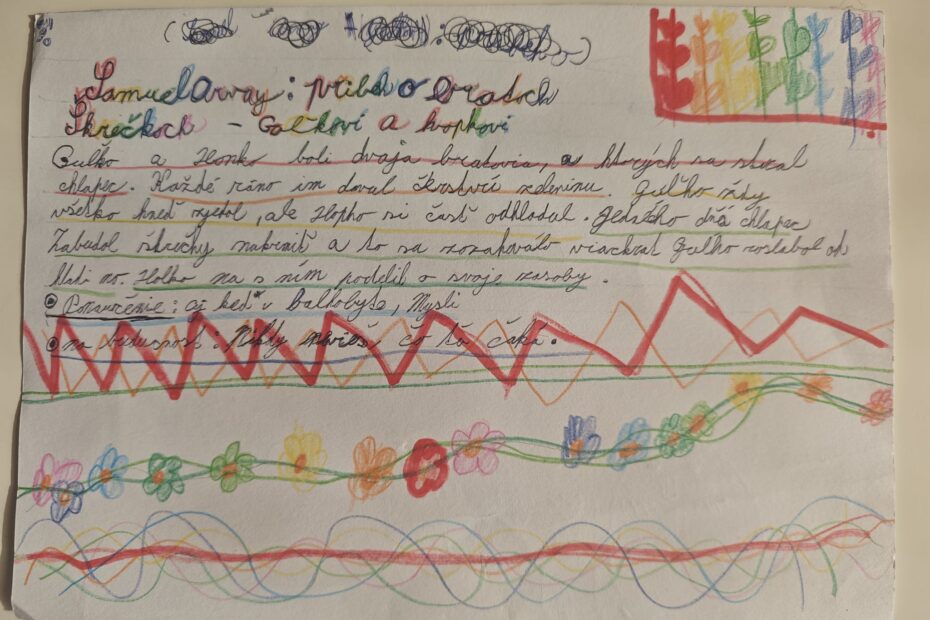 Samuel Arvay: príbeh o bratoch
Škrečkoch - Guľkovi a hopkovi
Guľko a Hopko boli dvaja bratovia, o ktorých sa staral
chlapec. Každé ráno im daval čerstvú zeleninu. Guľko vždy
všetko hneď zjedol, ale Hopko si časť odkladal. Jedného dňa chlapec
Zabudol škrečky nakŕmiť a to sa zozakovalo viackrát Guľko zoslabol od
hladu no. Hopko sa s ním podelil o svoje zásoby.
Ponaučenie: aj keď v Balhobyte, Mysli
na budúcnosť: Nikdy nevieš, čo ťa čaká.